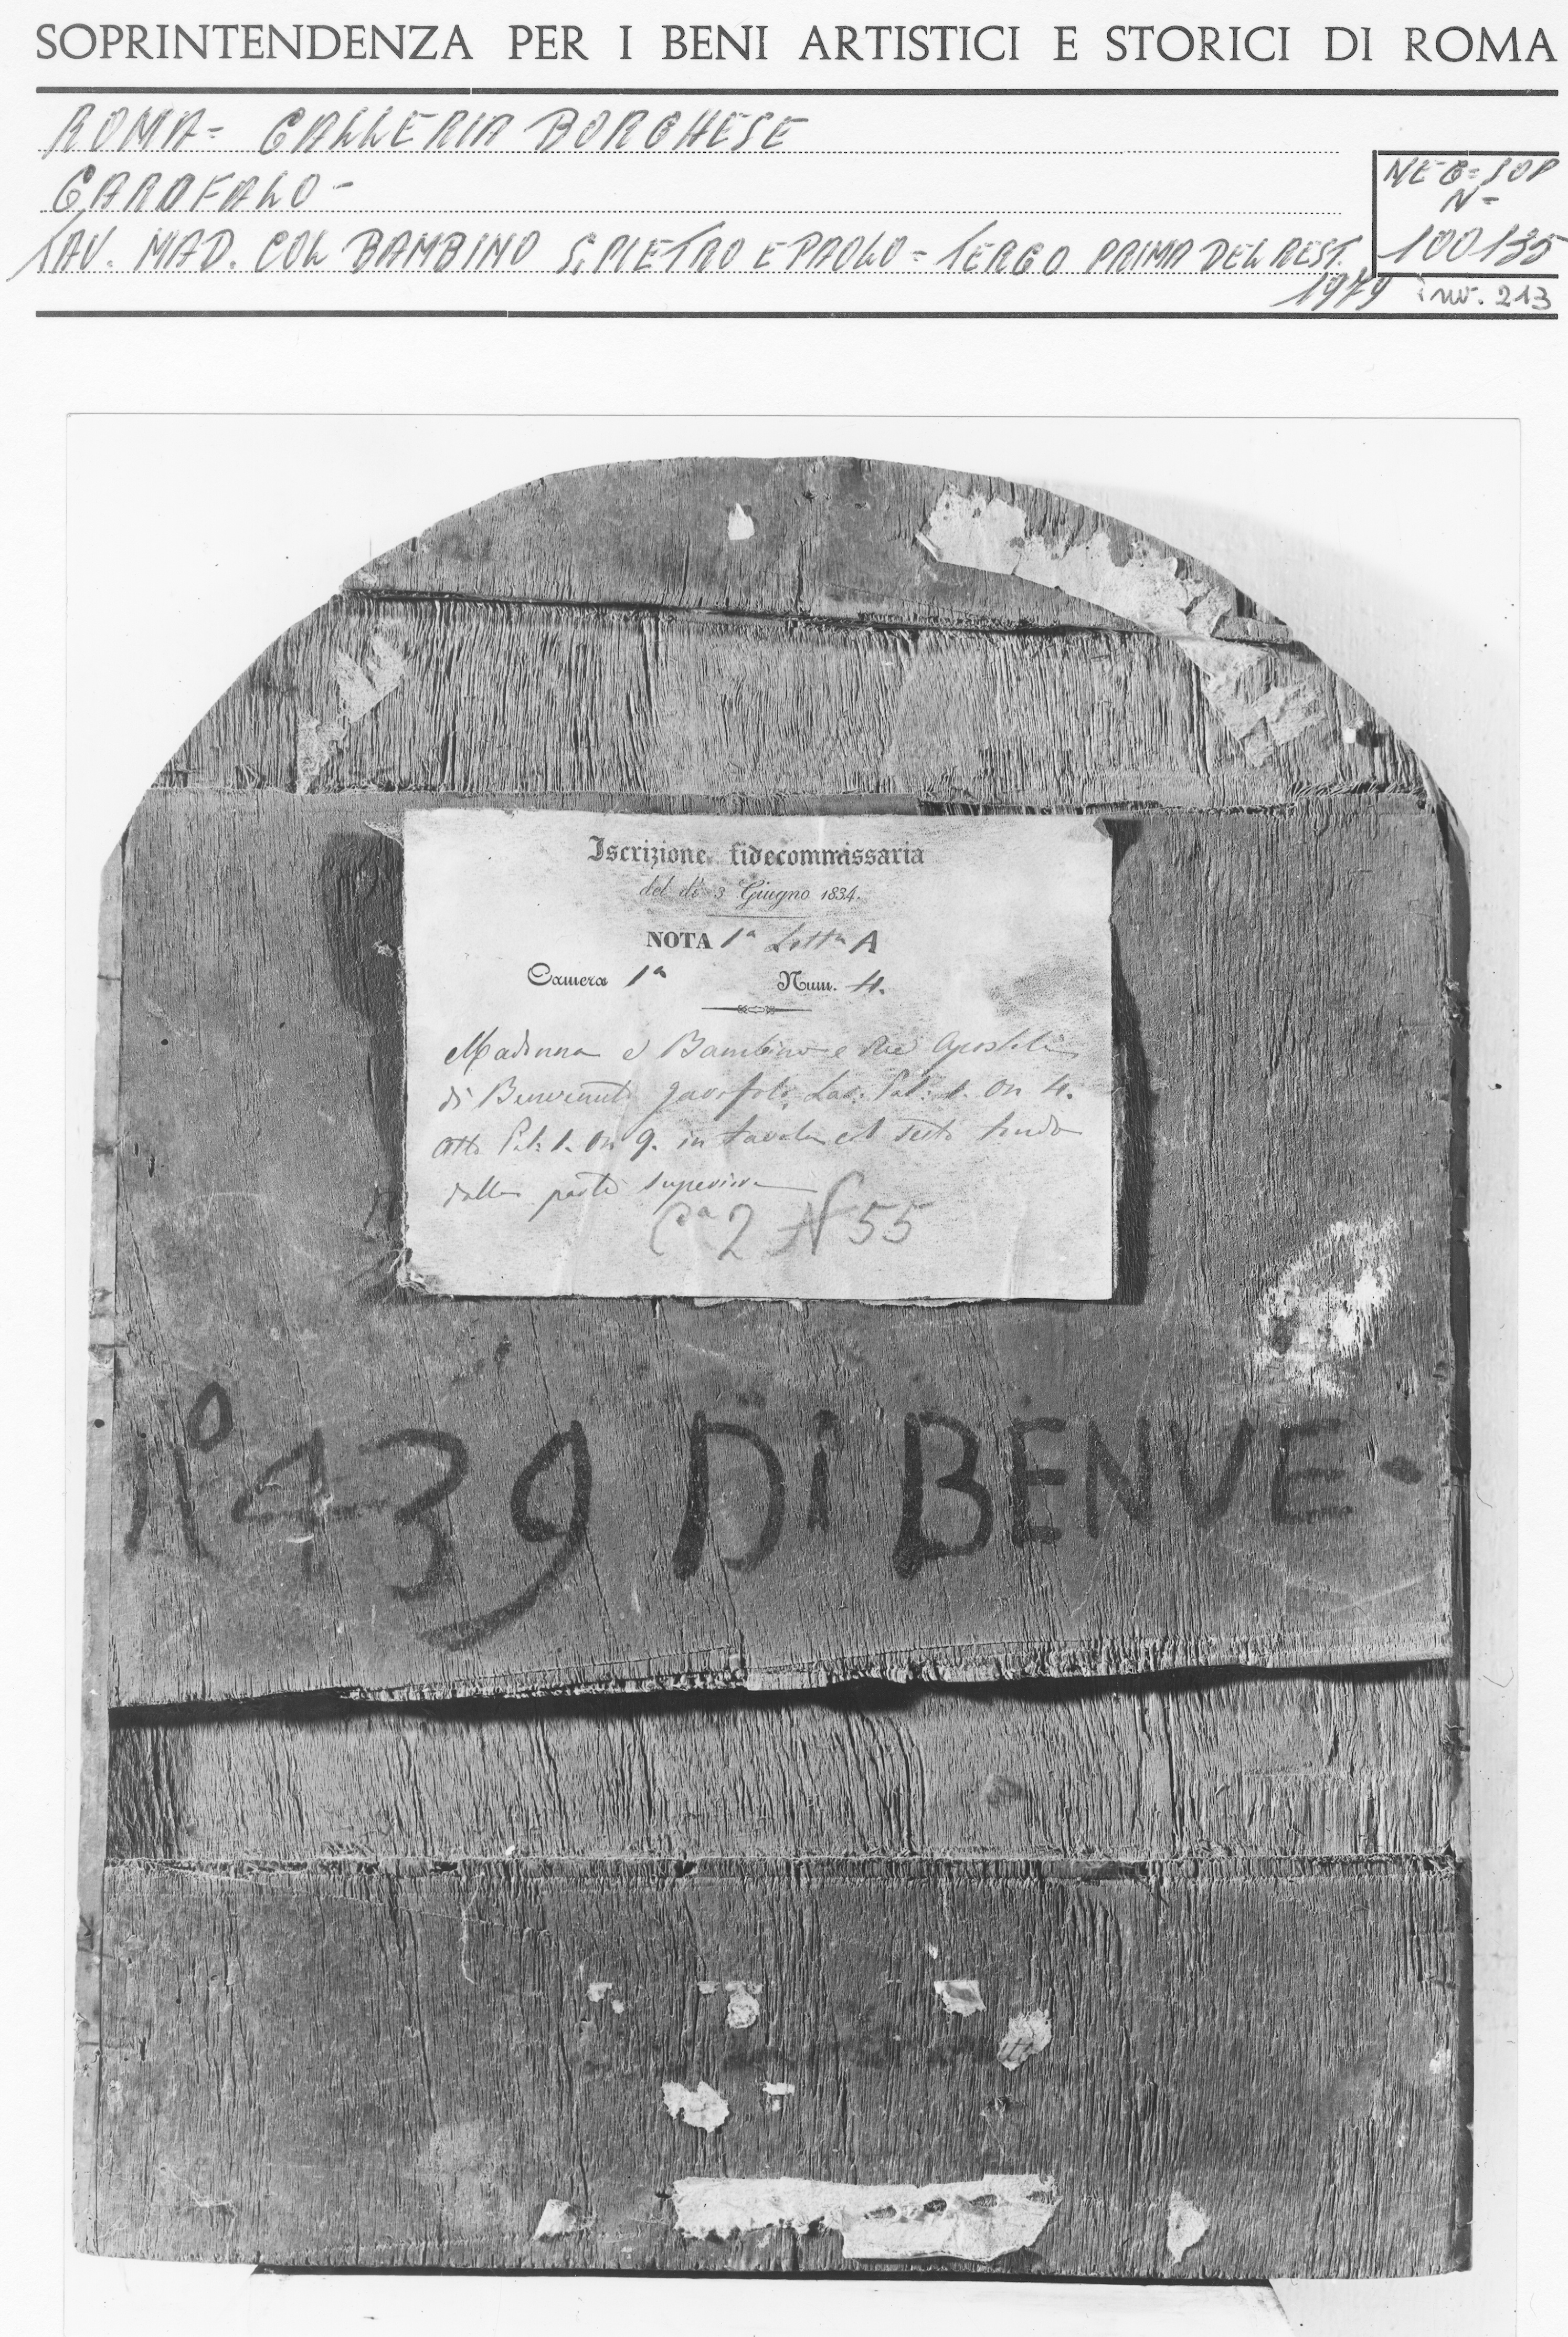 SOPRINTENDENZA PER I BENI ARTISTICI E STORICI DI ROMA
ROMA = GALLERIA BORGHESE
GAROFALO -
TAV. MAD. COL BAMBINO S. PIETRO E PAOLO = TERGO PRIMA DEL REST.
1979
NEG = SOP
N=
100135
inv. 213
Iscrizione fidecommissaria
del dì 3 Giugno 1834.
NOTA 1ª Lettª A
Camera 1ª Num. 4.
Madonna e Bambino e due Apostoli
di Benvenuto Garofolo, Lar: Pal: 1. On 4.
Alto Pal: 1. On 9. in tavola col Sesto tondo
dalla parte superiore
Cª 2 N 55
N° 439 Di BENVE-